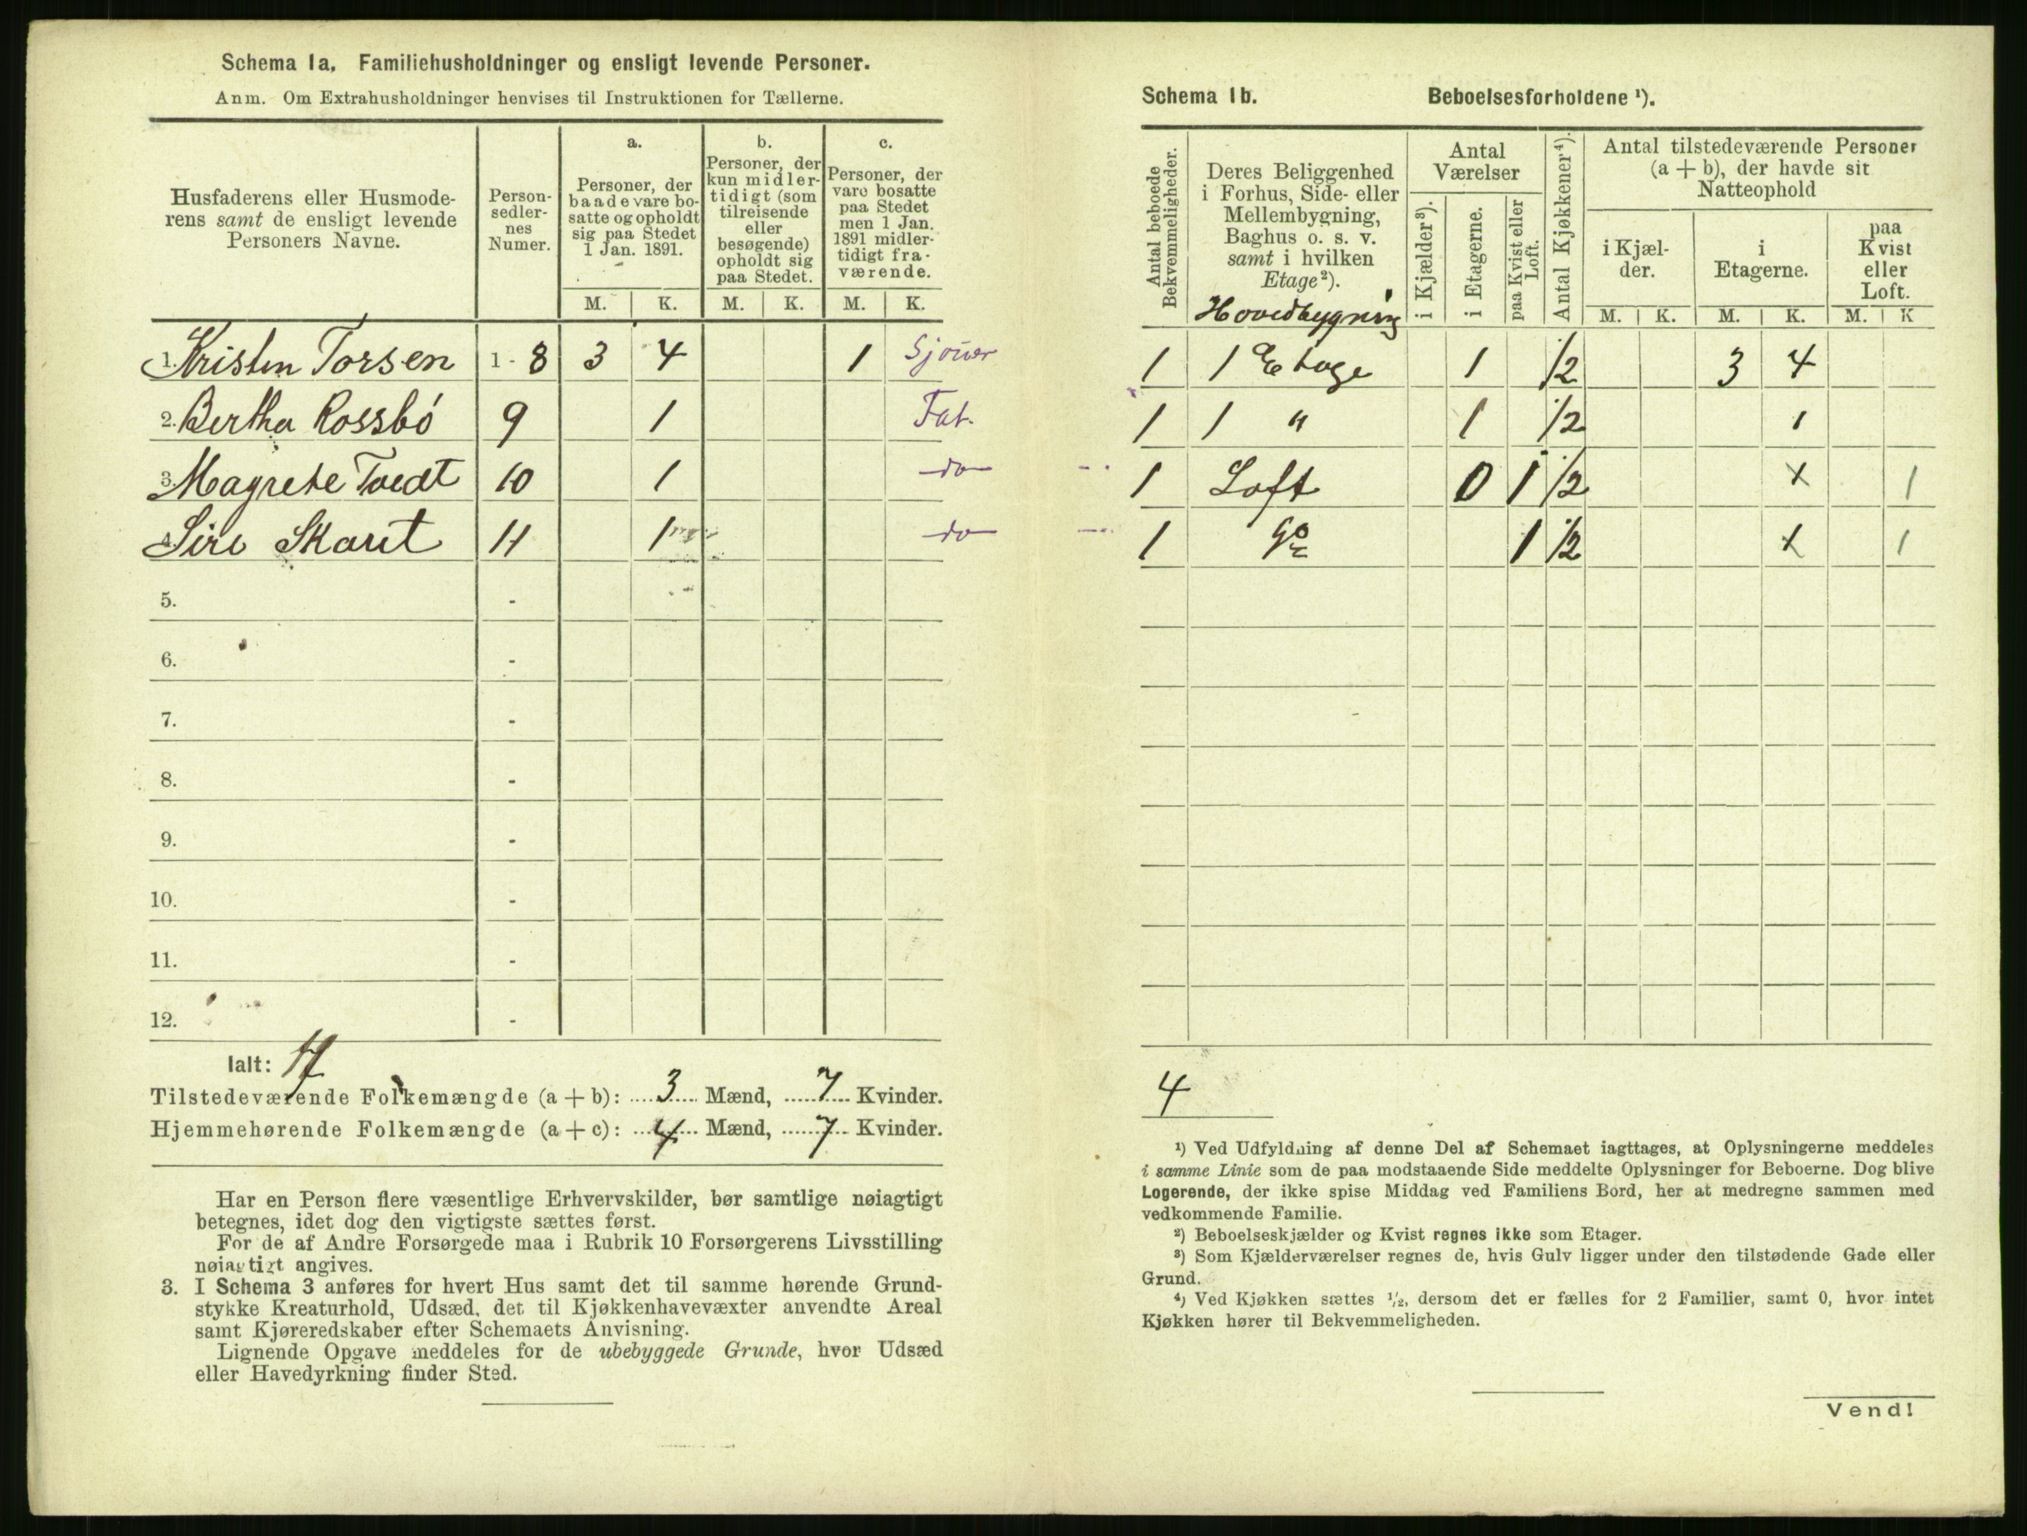 Schema 1a. Familiehusholdninger og ensligt levende Personer.
Anm. Om Extrahusholdninger henvises til Instruktionen for Tællerne.
Husfaderens eller Husmode-
rens samt de ensligt levende
Personers Navne.
Person-
sedler-
nes
Numer.
a.
Personer, der
baade vare bo-
satte og opholdt
sig paa Stedet
1 Jan. 1891.
b.
Personer, der
kun midler-
tidigt (som
tilreisende
eller
besøgende)
opholdt sig
paa Stedet.
c.
Personer, der
vare bosatte
paa Stedet
men 1 Jan.
1891 midler-
tidigt fra-
værende.
M. K. M. K. M. K.
1. Kristen Torsen 1 - 8 3 4 1 Sjouer
2. Bertha Rossbö 9 1 Fat.
3. Magrete Tvedt 10 1 do
4. Siri Skaret 11 1 do
5. -
6. -
7. -
8. -
9. -
10. -
11. -
12. -
Ialt:
Tilstedeværende Folkemængde (a + b): 3 Mænd, 7 Kvinder.
Hjemmehørende Folkemængde (a + c): 4 Mænd, 7 Kvinder.
Har en Person flere væsentlige Erhvervskilder, bør samtlige nøiagtigt
betegnes, idet dog den vigtigste sættes først.
For de af Andre Forsørgede maa i Rubrik 10 Forsørgerens Livsstilling
nøiagtigt angives.
3. I Schema 3 anføres for hvert Hus samt det til samme hørende Grund-
stykke Kreaturhold, Udsæd, det til Kjøkkenhavevæxter anvendte Areal
samt Kjøreredskaber efter Schemaets Anvisning.
Lignende Opgave meddeles for de ubebyggede Grunde, hvor Udsæd
eller Havedyrkning finder Sted.
Schema 1b. Beboelsesforholdene ¹).
Antal beboede
Bekvemmeligheder.
Deres Beliggenhed
i Forhus, Side- eller
Mellembygning,
Baghus o. s. v.
samt i hvilken
Etage²).
Hovedbygning
Antal
Værelser
i Kjælder³).
i Etagerne.
paa Kvist eller
Loft.
Antal Kjøkkener⁴).
Antal tilstedeværende Personer
(a + b), der havde sit
Natteophold
i Kjæl-
der.
i
Etagerne.
paa
Kvist
eller
Loft.
M. K. M. K. M. K
1 1 Etage 1 1/2 3 4
1 1 " 1 1/2 1
1 Loft 0 1 1/2 x 1
1 1 1/2 x 1
4
¹) Ved Udfyldning af denne Del af Schemaet iagttages, at Oplysningerne meddeles
i samme Linie som de paa modstaaende Side meddelte Oplysninger for Beboerne. Dog blive
Logerende, der ikke spise Middag ved Familiens Bord, her at medregne sammen med
vedkommende Familie.
²) Beboelseskjælder og Kvist regnes ikke som Etager.
³) Som Kjælderværelser regnes de, hvis Gulv ligger under den tilstødende Gade eller
Grund.
⁴) Ved Kjøkken sættes ¹/₂, dersom det er fælles for 2 Familier, samt 0, hvor intet
Kjøkken hører til Bekvemmeligheden.
Vend!